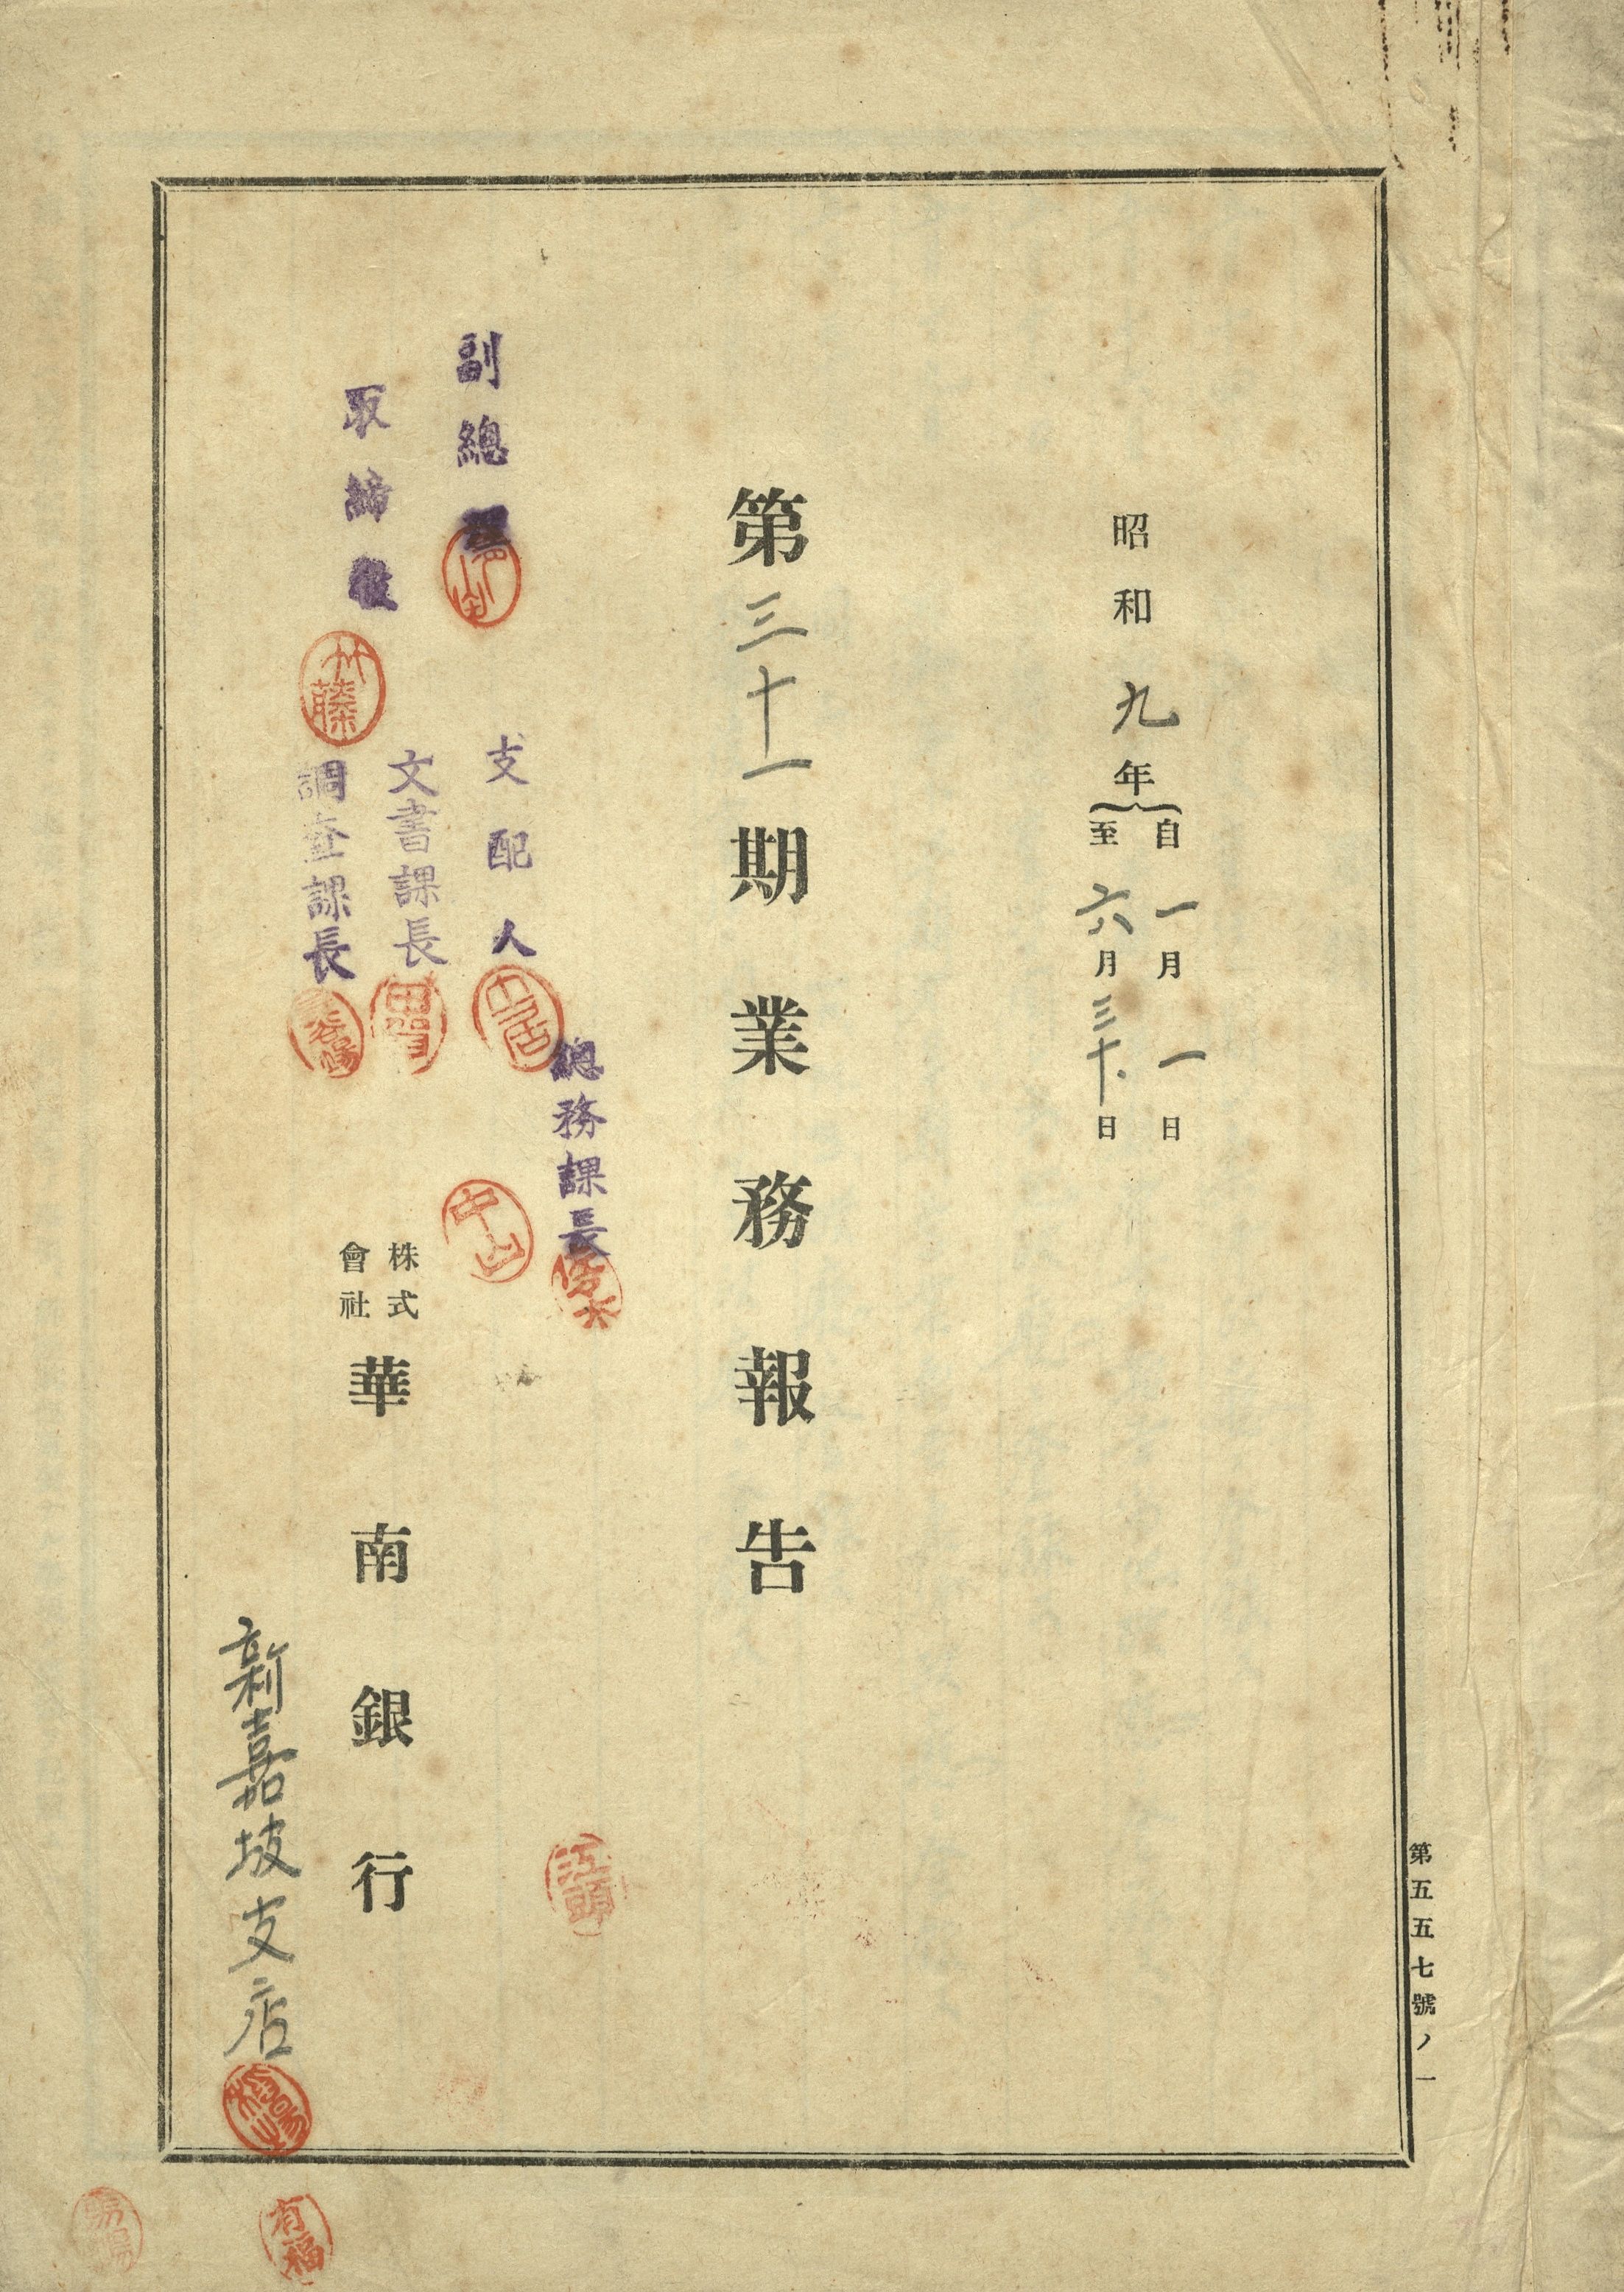 昭和九年
自一月一日
至六月三十日
第三十一期業務報告
總務課長
副總理
支配人
中山
取締役
文書課長
調査課長
竹藤
株式會社
華南銀行
新嘉坡支店
江頭
有福
第五五七號ノ一